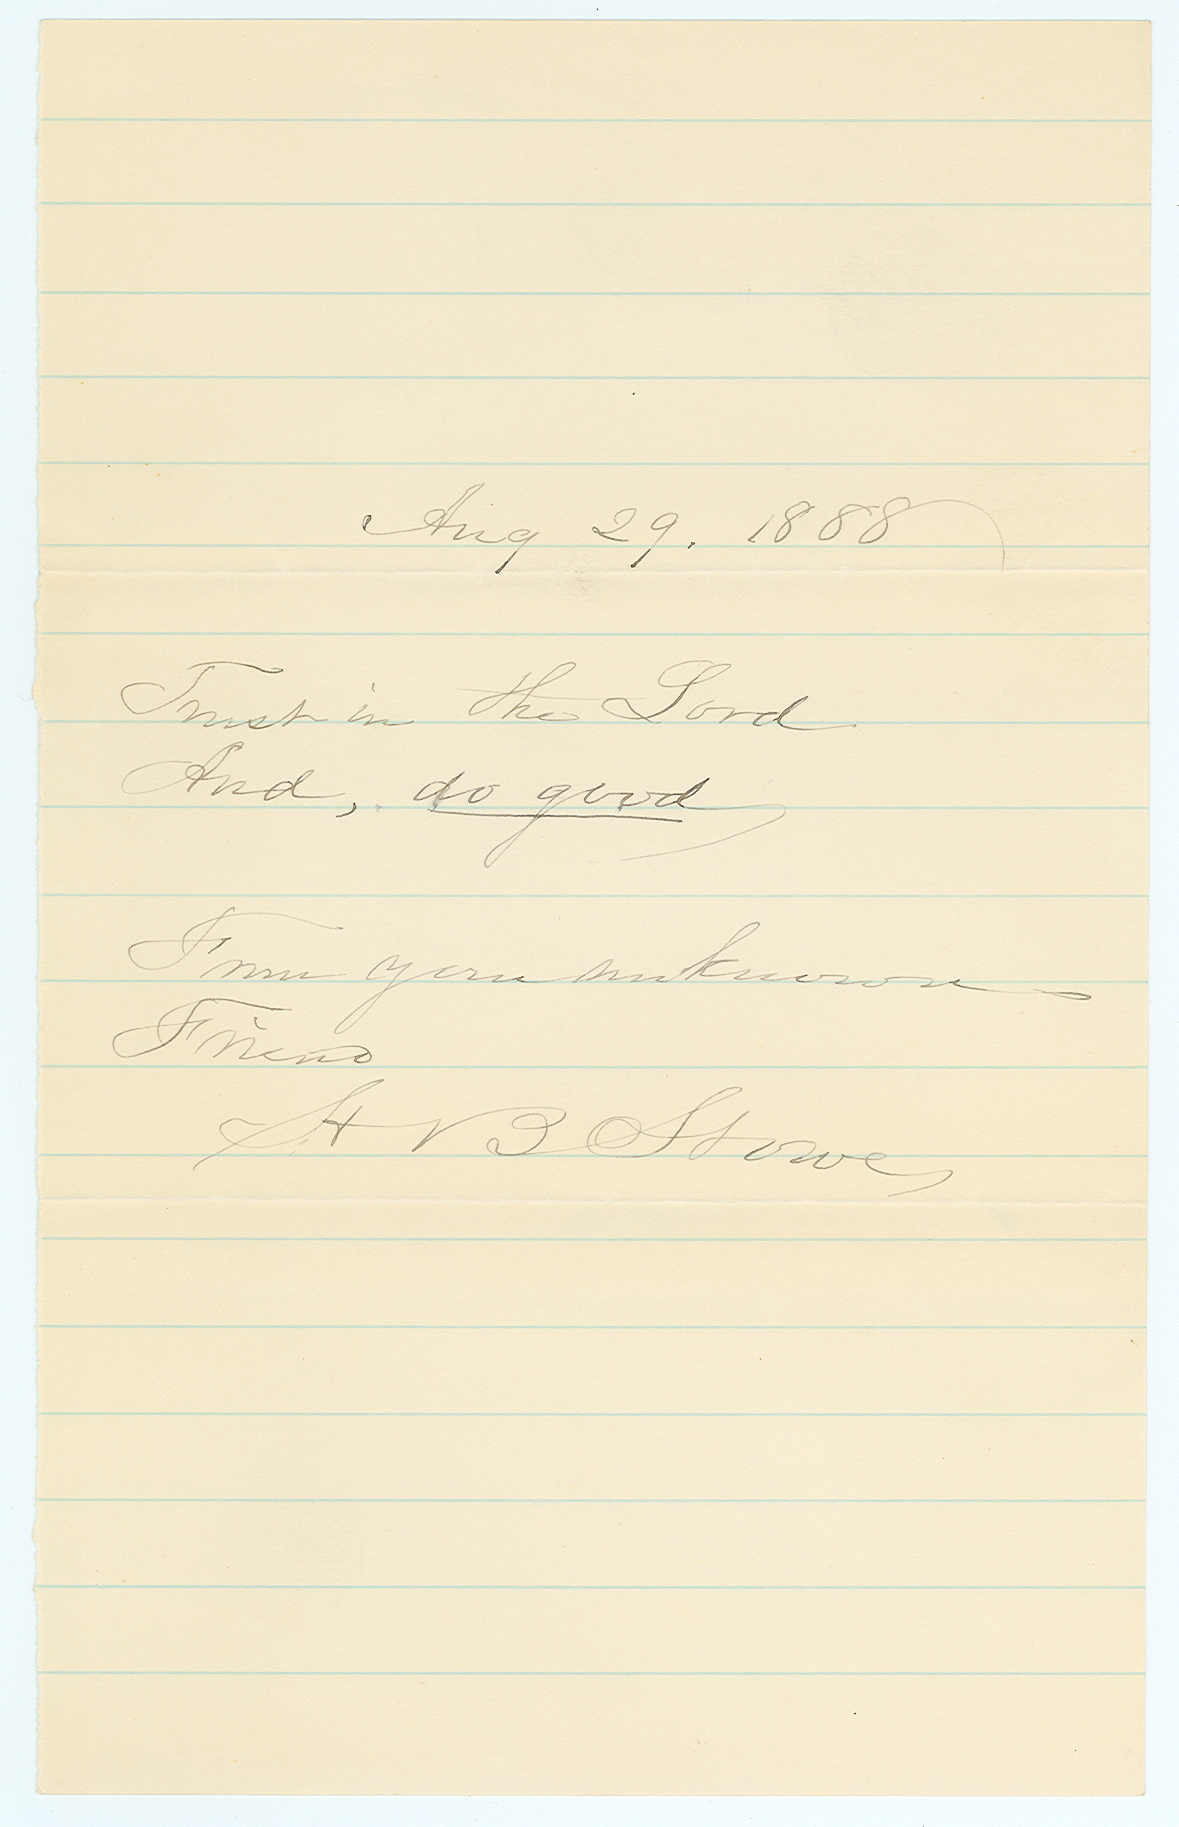 Aug 29. 1888
Trust in the Lord
And, do good
From your unknown
Friend
H B Stowe